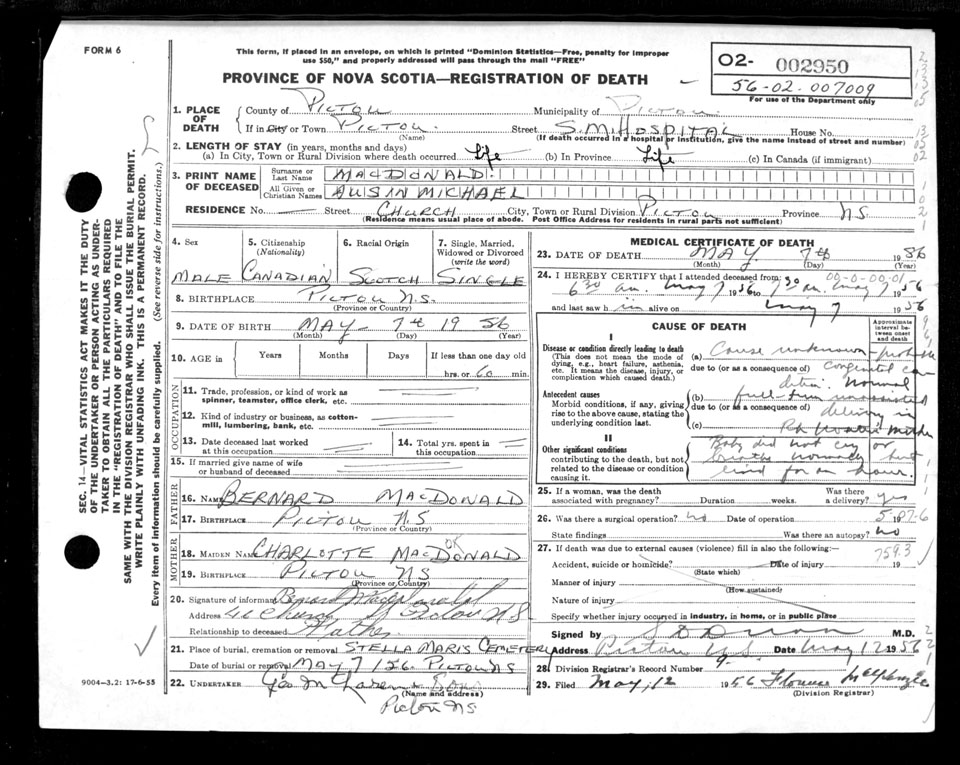 FORM 6
This form, if placed in an envelope, on which is printed "Dominion Statistics—Free, penalty for improper
use $50," and properly addressed will pass through the mail "FREE"
PROVINCE OF NOVA SCOTIA—REGISTRATION OF DEATH
02- 002950
56-02-007009
For use of the Department only
1. PLACE OF DEATH
County of PICTOU Municipality of PICTOU
If in City or Town PICTOU Street S.M. HOSPITAL House No.
(Name) (If death occurred in a hospital or institution, give the name instead of street and number)
2. LENGTH OF STAY (in years, months and days)
(a) In City, Town or Rural Division where death occurred Life (b) In Province Life (c) In Canada (if immigrant)
3. PRINT NAME OF DECEASED
Surname or Last Name MACDONALD
All Given or Christian Names AUSIN MICHAEL
RESIDENCE No. — Street CHURCH City, Town or Rural Division PICTOU Province N.S.
(Residence means usual place of abode. Post Office Address for residents in rural parts not sufficient)
4. Sex MALE
5. Citizenship (Nationality) CANADIAN
6. Racial Origin SCOTCH
7. Single, Married, Widowed or Divorced (write the word) SINGLE
8. BIRTHPLACE PICTOU N.S.
(Province or Country)
9. DATE OF BIRTH MAY 7th 1956
(Month) (Day) (Year)
10. AGE in Years Months Days If less than one day old
hrs. or 60 min.
OCCUPATION
11. Trade, profession, or kind of work as
spinner, teamster, office clerk, etc.
12. Kind of industry or business, as cotton-
mill, lumbering, bank, etc.
13. Date deceased last worked
at this occupation
14. Total yrs. spent in
this occupation
15. If married give name of wife
or husband of deceased
FATHER
16. NAME BERNARD MACDONALD
17. BIRTHPLACE PICTOU N.S
(Province or Country)
MOTHER
18. MAIDEN NAME CHARLOTTE MACDONALD
19. BIRTHPLACE PICTOU NS
(Province or Country)
20. Signature of informant Bernard MacDonald
Address Church Pictou N.S
Relationship to deceased Father
21. Place of burial, cremation or removal STELLA MARIS CEMETERY
Date of burial or removal MAY 7/56. PICTOU NS
22. UNDERTAKER Geo &  Sons
(Name and address)
Pictou NS
9004—3.2: 17-6-55
MEDICAL CERTIFICATE OF DEATH
23. DATE OF DEATH MAY 7th 1956
(Month) (Day) (Year)
24. I HEREBY CERTIFY that I attended deceased from:
6 30 am. May 7 1956 to 7 30 am. May 7 1956
and last saw him alive on May 7 1956
CAUSE OF DEATH
Approximate interval between onset and death
I
Disease or condition directly leading to death
(This does not mean the mode of dying, e.g., heart failure, asthenia, etc. It means the disease, injury, or complication which caused death.)
(a) Cause unknown - probable
due to (or as a consequence of) congenital con
dition. Normal
Antecedent causes
Morbid conditions, if any, giving rise to the above cause, stating the underlying condition last.
(b) full-term unassisted
due to (or as a consequence of) delivery in
(c) Rh mother
II
Other significant conditions
contributing to the death, but not related to the disease or condition causing it.
Baby did not cry or
breathe normally but
lived for an hour.
25. If a woman, was the death
associated with pregnancy? Duration weeks. Was there a delivery? yes
26. Was there a surgical operation? no Date of operation 19
State findings Was there an autopsy? no
27. If death was due to external causes (violence) fill in also the following:—
759.3
Accident, suicide or homicide? Date of injury 19
(State which)
Manner of injury
(How sustained)
Nature of injury
Specify whether injury occurred in industry, in home, or in public place
Signed by M.D.
Address Pictou N.S. Date May 12 1956
28. Division Registrar's Record Number 9
29. Filed May, 12 1956 Florence McKenzie
(Division Registrar)
SEC. 14—VITAL STATISTICS ACT MAKES IT THE DUTY
OF THE UNDERTAKER OR PERSON ACTING AS UNDER-
TAKER TO OBTAIN ALL THE PARTICULARS REQUIRED
IN THE "REGISTRATION OF DEATH" AND TO FILE THE
SAME WITH THE DIVISION REGISTRAR WHO SHALL ISSUE THE BURIAL PERMIT.
WRITE PLAINLY WITH UNFADING INK. THIS IS A PERMANENT RECORD.
Every item of information should be carefully supplied. (See reverse side for instructions.)